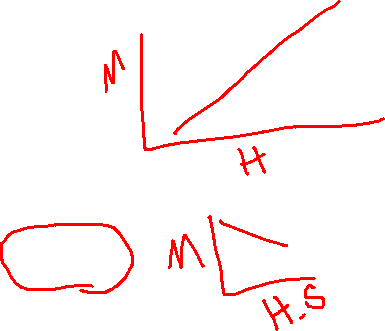 M
H
M
H.S